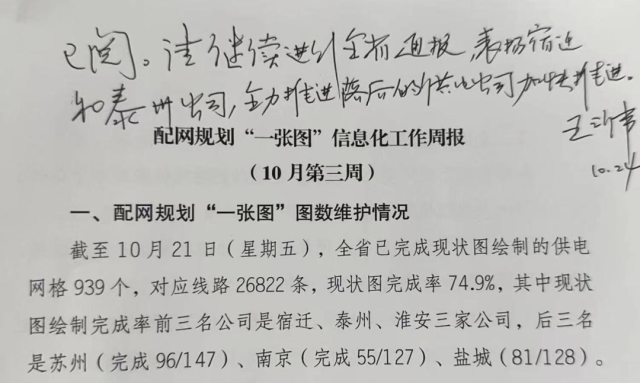 已阅。请继续进行全省通报,表扬宿迁
和泰州公司,全力推进落后的供电公司加快推进。
王
10.24
配网规划“一张图”信息化工作周报
(10月第三周)
一、配网规划“一张图”图数维护情况
截至10月21日(星期五),全省已完成现状图绘制的供电
网格939个,对应线路26822条,现状图完成率74.9%,其中现状
图绘制完成率前三名公司是宿迁、泰州、淮安三家公司,后三名
是苏州(完成96/147)、南京(完成55/127)、盐城(81/128)。